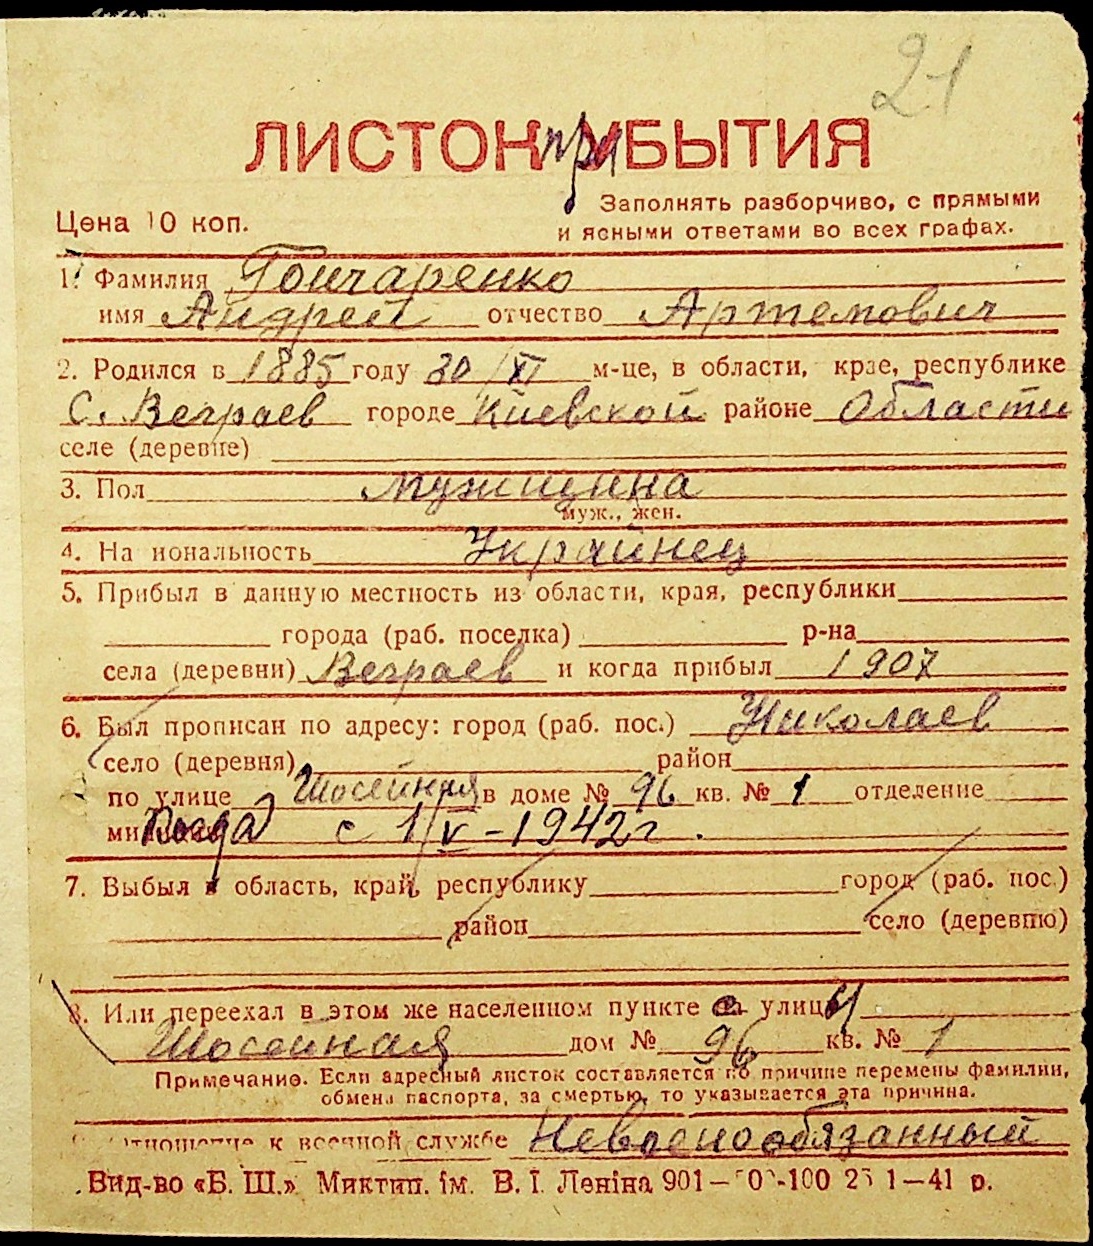 21
ЛИСТОК при УБЫТИЯ
Заполнять разборчиво, с прямыми
Цена 10 коп. и ясными ответами во всех графах.
1. Фамилия Гончаренко
имя Андрей отчество Артемович
2. Родился в 1885 году 30/XI м-це, в области, крае, республике
С. Веграев городе Киевской районе Области
селе (деревне)
3. Пол мужщина
муж., жен.
4. На иональность Украинец
5. Прибыл в данную местность из области, края, республики
города (раб. поселка) р-на
села (деревни) Веграев и когда прибыл 1907
6. Был прописан по адресу: город (раб. пос.) Николаев
село (деревня) район
по улице Шосейная в доме № 96 кв. № 1 отделение
Когда с 1/V-1942г.
7. Выбыл в область, край, республику город (раб. пос.)
район село (деревню)
8. Или переехал в этом же населенном пункте с улицы
Шосейная дом № 96 кв. № 1
Примечание. Если адресный листок составляется по причине перемены фамилии,
обмена паспорта, за смертью, то указывается эта причина.
отношение к военной службе Невоенообязанный
Вид-во «Б. Ш.» Миктип. ім. В. І. Леніна 901— -100 1—41 р.